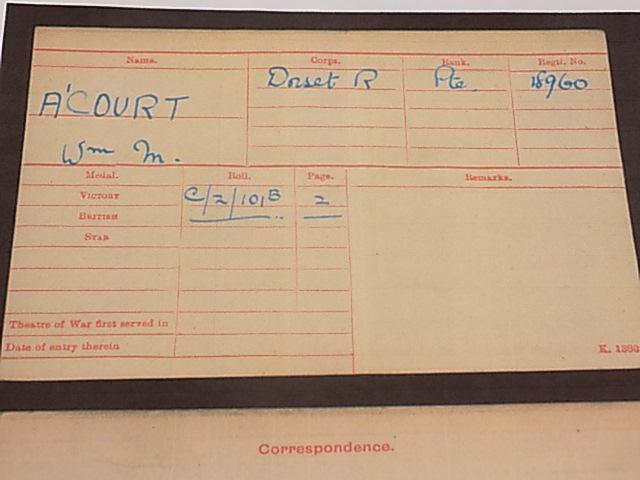 Name. Corps. Rank. Regtl. No.
A'COURT Dorset R Pte 18960
Wm M.
Medal. Roll. Page. Remarks.
VICTORY C/2/101B 2
BRITISH
STAR
Theatre of War first served in
Date of entry therein
K. 1380
Correspondence.